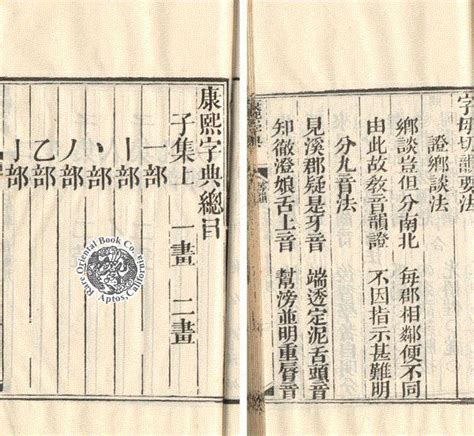 字母切韻要法
證鄉談法
鄉談豈但分南北 每郡相鄰便不同
由此故教音韻證 不因指示甚難明
分九音法
見溪郡疑是牙音 端透定泥舌頭音
知徹澄娘舌上音 幫滂並明重唇音
康熙字典總目
子集上 一畫 二畫
一部
丨部
丶部
丿部
乙部
亅部
Rare Oriental Book Co.
Aptos, California